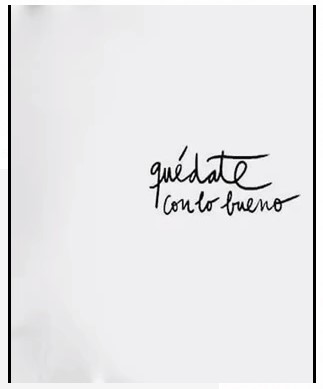 quédate
con lo bueno